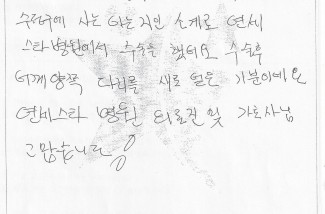 수정구에 사는 아는 지인 소개로 연세
스타병원에서 수술을 했네요 수술후
어깨 양쪽 다리를 새로 얻은 기분이에요
연세스타 병원 의료진 및 간호사님
고맙습니다